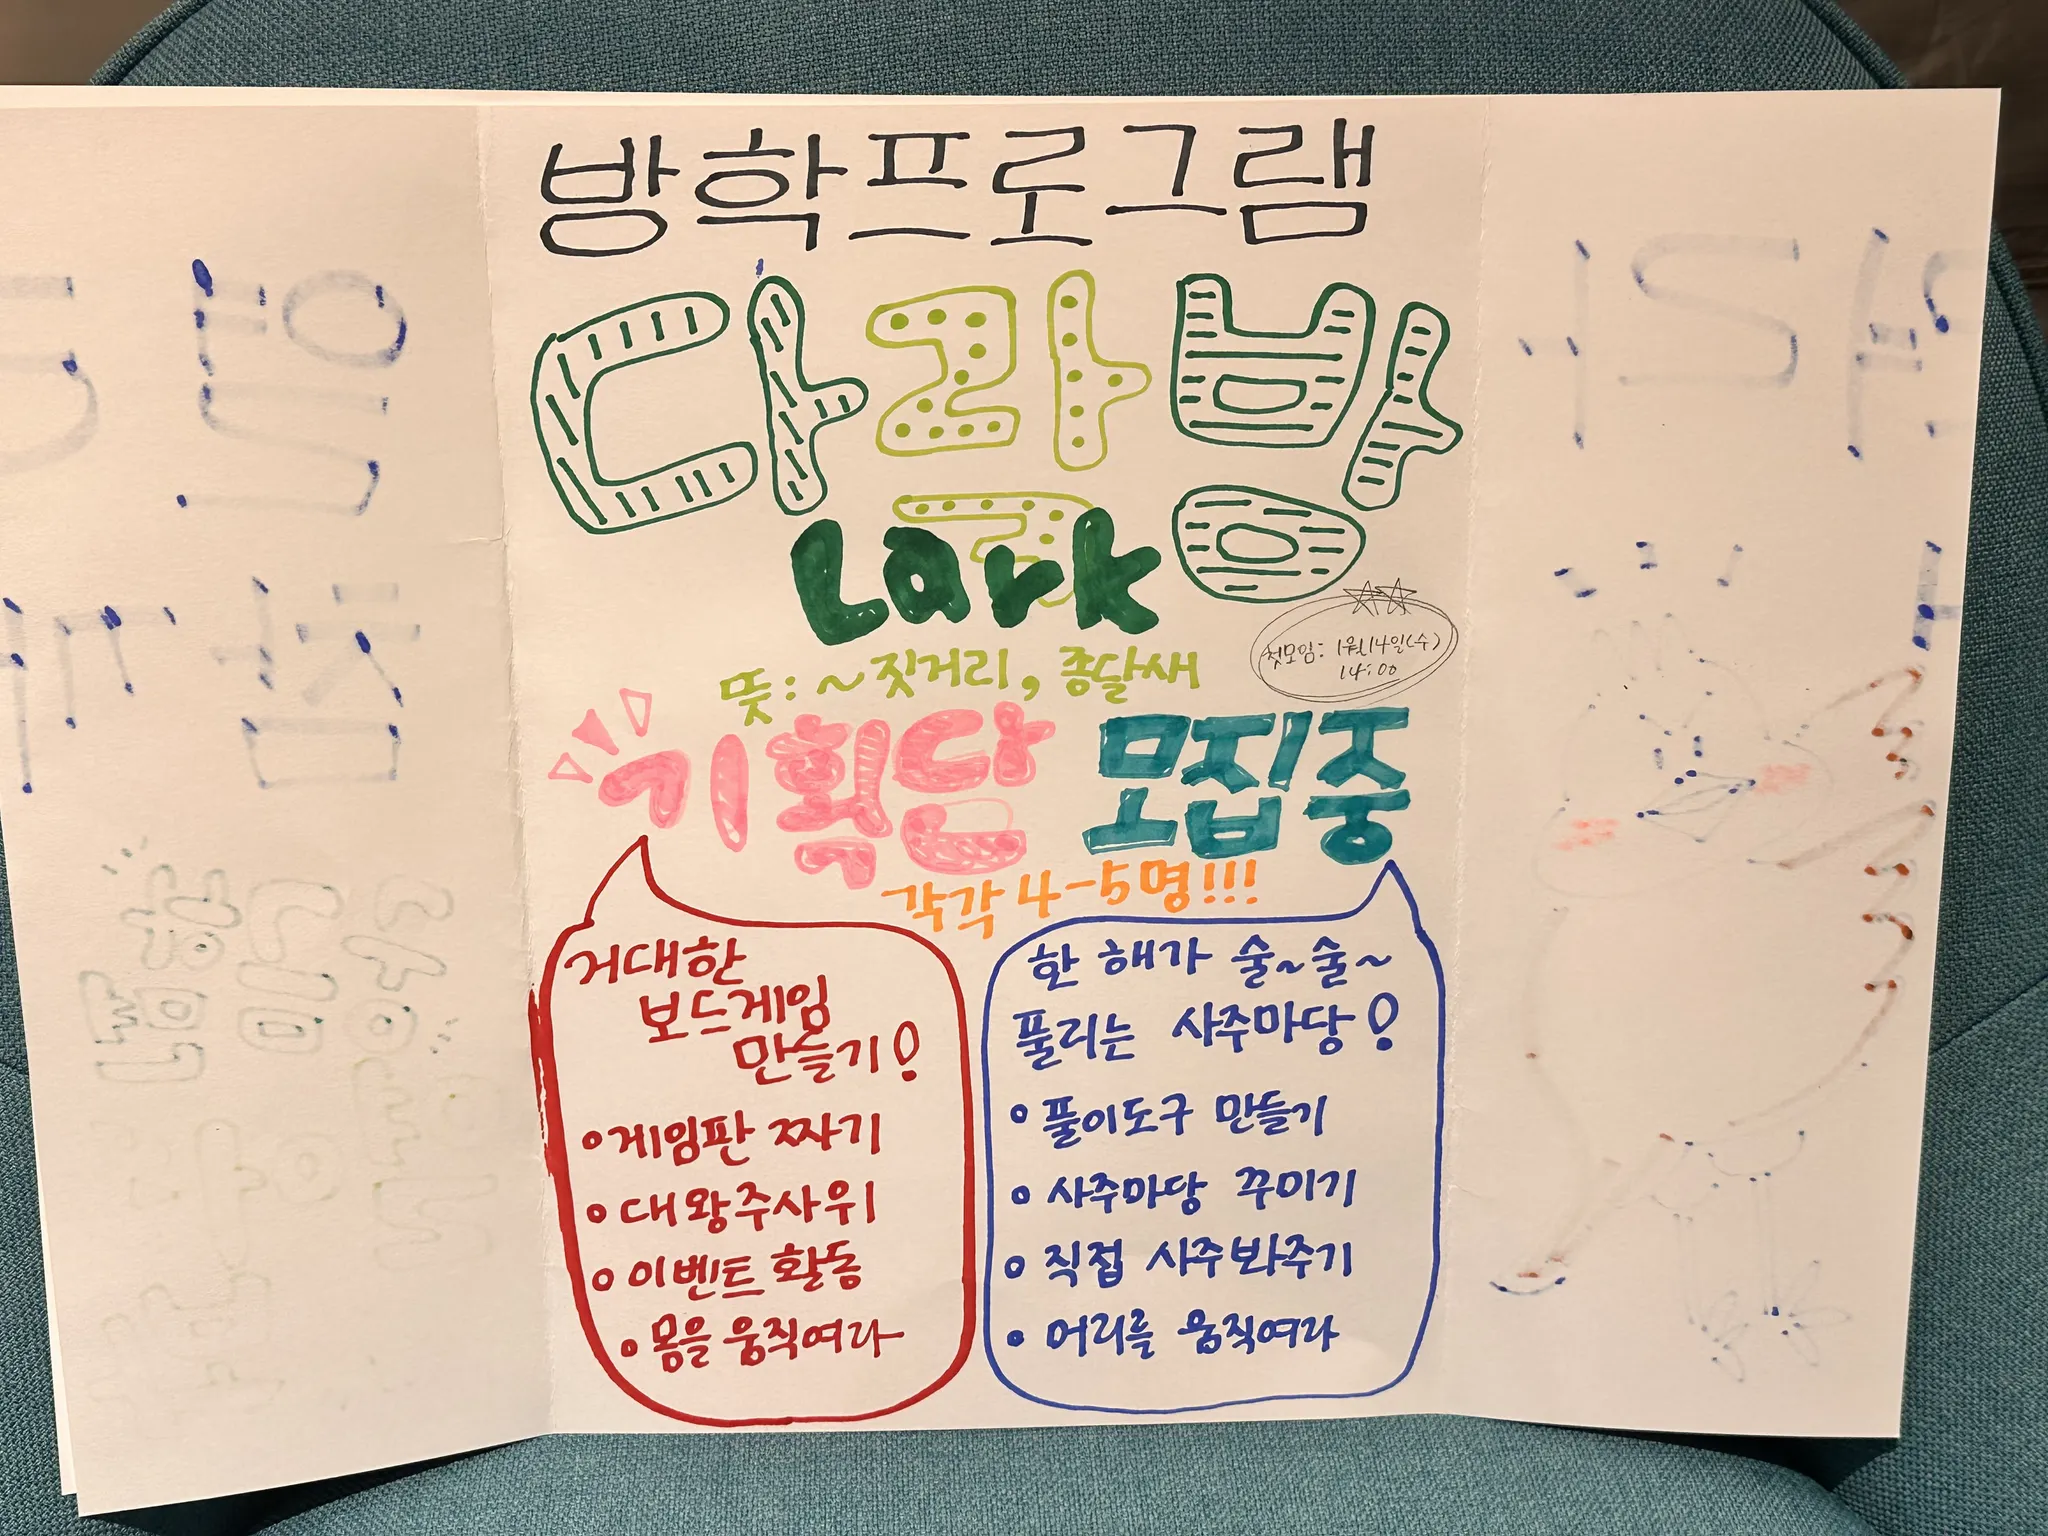 방학프로그램
다락방
Lark
뜻: ~짓거리, 종달새
첫모임: 1월14일(수)
14:00
기획단 모집중
각각 4-5명!!!
거대한
보드게임
만들기!
게임판 짜기
대왕주사위
이벤트 활동
몸을 움직여라
한 해가 술~술~
풀리는 사주마당!
풀이도구 만들기
사주마당 꾸미기
직접 사주봐주기
머리를 움직여라